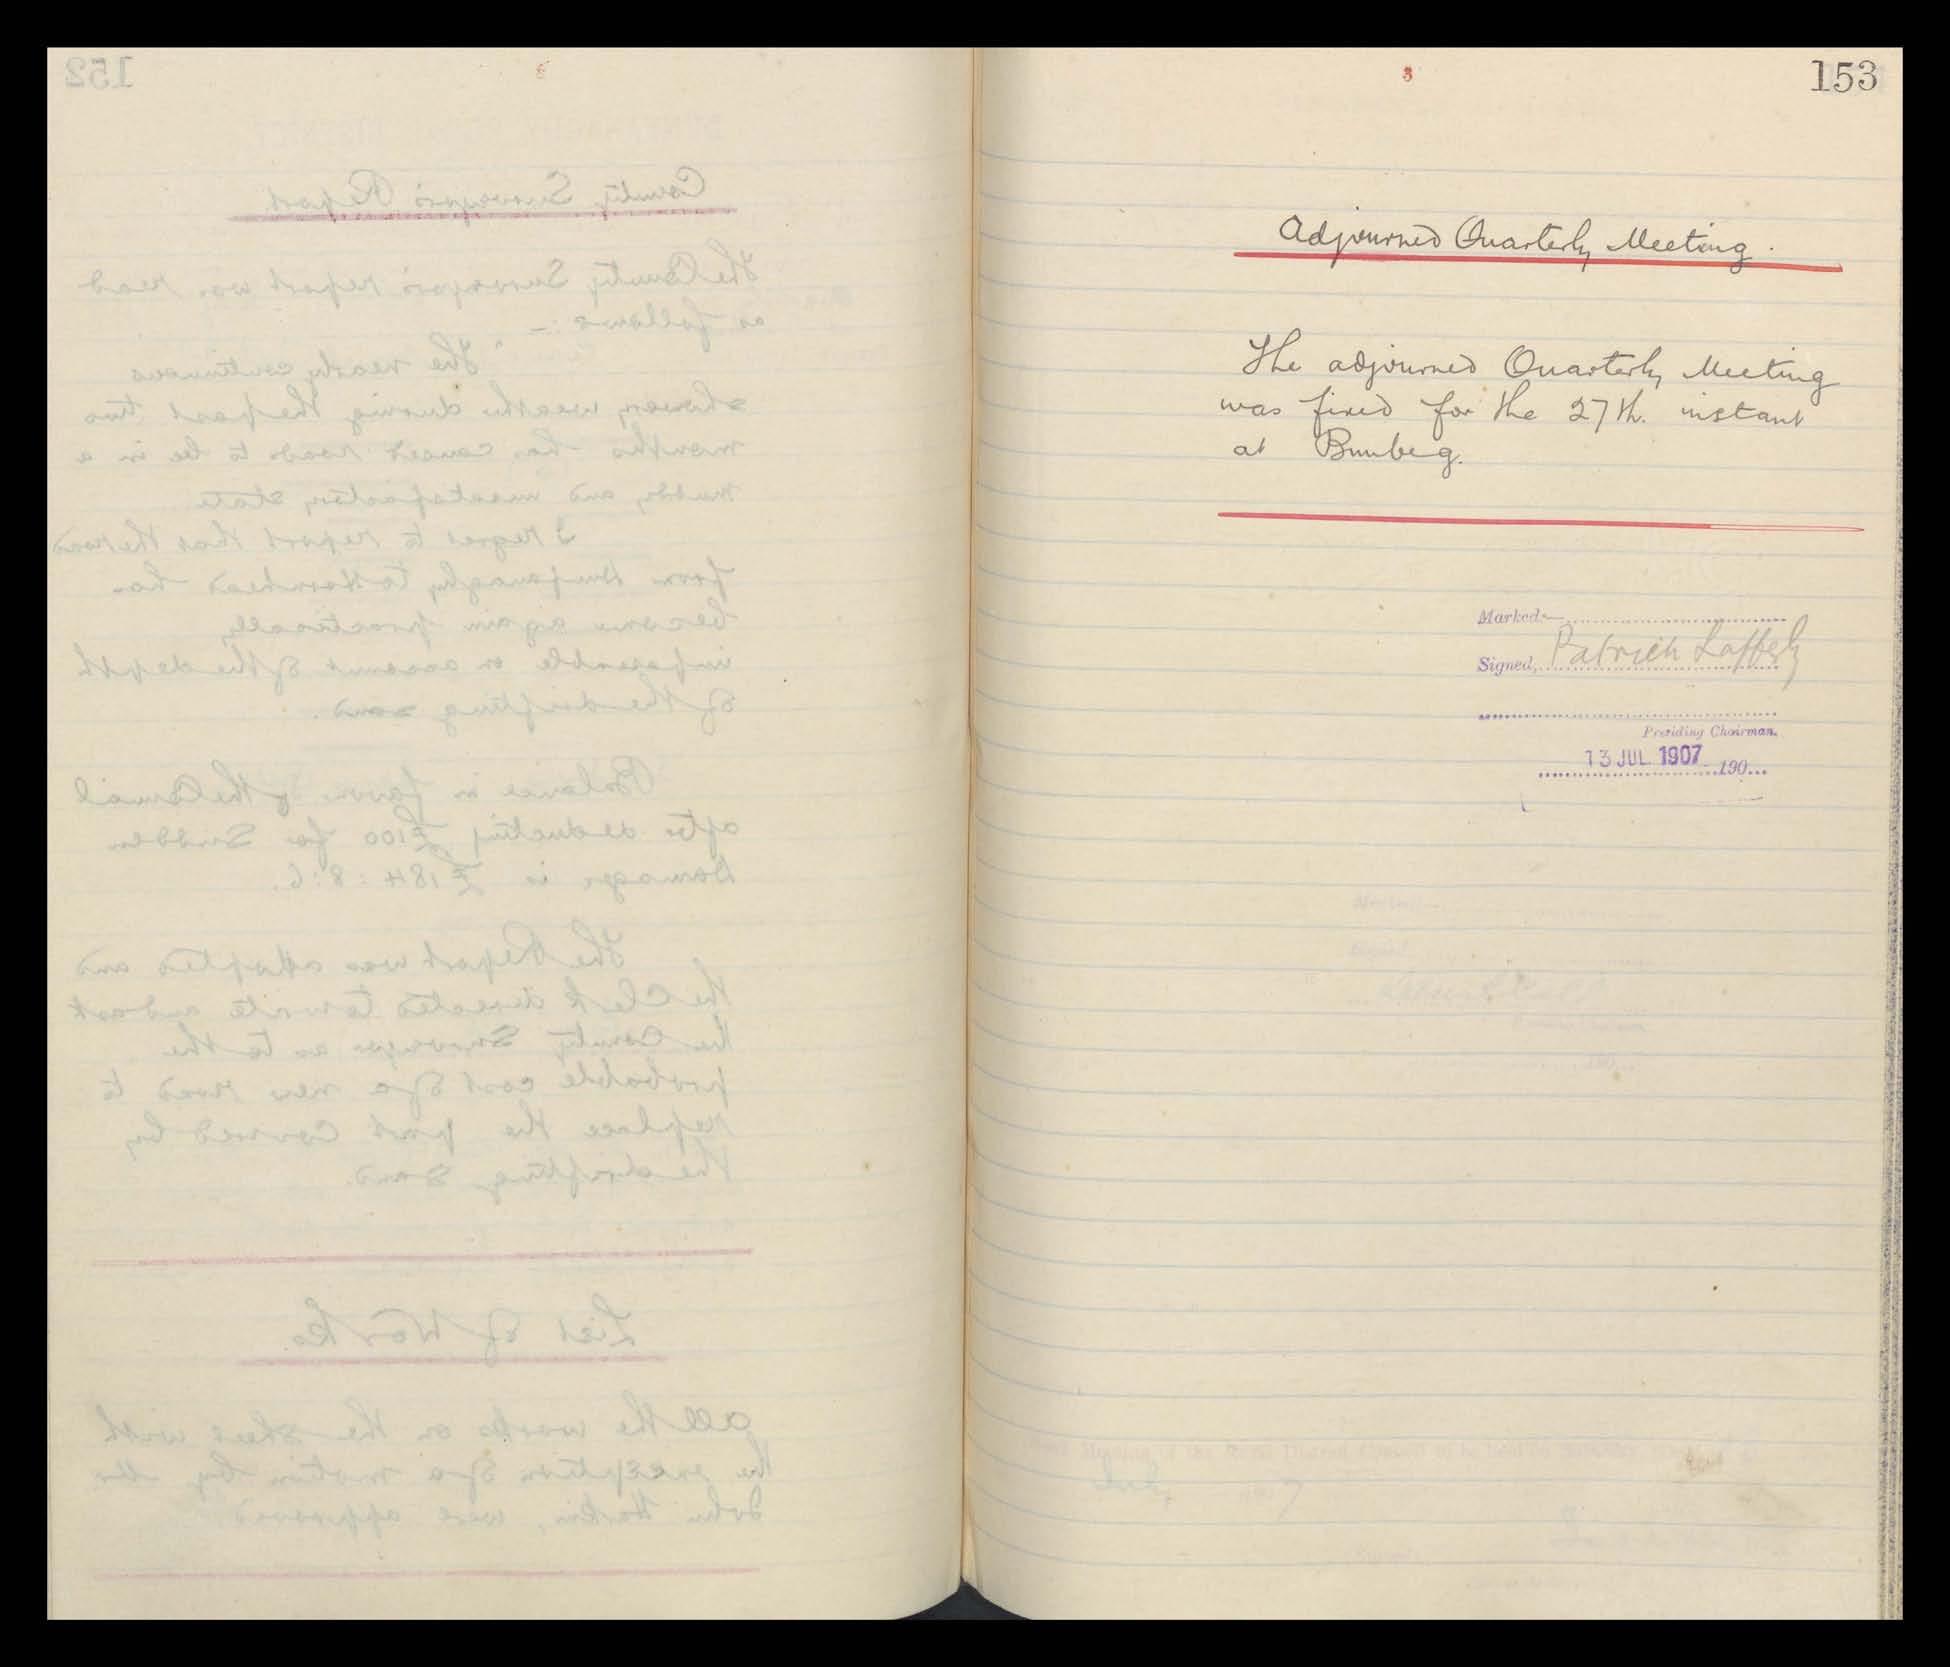 152
County Surveyor's Report
The County Surveyor's report was read
as follows :-
"The nearly continuous
showery weather during the past two
months has caused roads to be in a
muddy and unsatisfactory state
I regret to report that the road
from Dunfanaghy to Hornhead has
become again practically
impassable on account of the depth
of the drifting sand.
Balance in favour of the Council
after deducting £100 for Sudden
Damages is £184 : 8 : 6.
The Report was adopted and
the Clerk directed to write and ask
the County Surveyor as to the
probable cost of a new road to
replace the part covered by
the drifting sand.
List of Works
All the works on the sheet with
the exception of a motion by Mr
John Harkin, were approved
3
153
Adjourned Quarterly Meeting.
The adjourned Quarterly Meeting
was fixed for the 27th. instant
at Bunbeg.
Marked:—
Signed, Patrick Lafferty
Presiding Chairman.
13 JUL 1907 190...